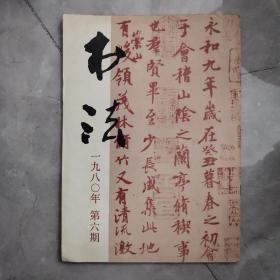 书法
一九八〇年 第六期
永和九年歲在癸丑暮春之初會
于會稽山陰之蘭亭脩稧事
也羣賢畢至少長咸集此地
有崇山
峻領茂林脩竹又有清流激